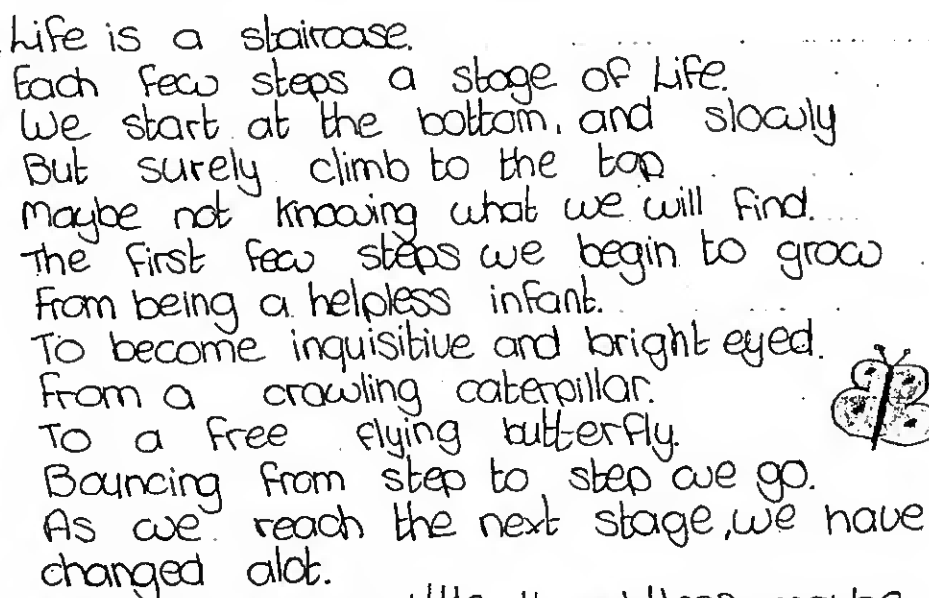 Life is a staircase.
Each few steps a stage of Life.
We start at the bottom, and slowly
But surely climb to the top
Maybe not knowing what we will find.
The first few steps we begin to grow
From being a helpless infant.
To become inquisitive and bright eyed.
From a crawling caterpillar.
To a free flying butterfly.
Bouncing from step to step we go.
As we reach the next stage, we have
changed alot.